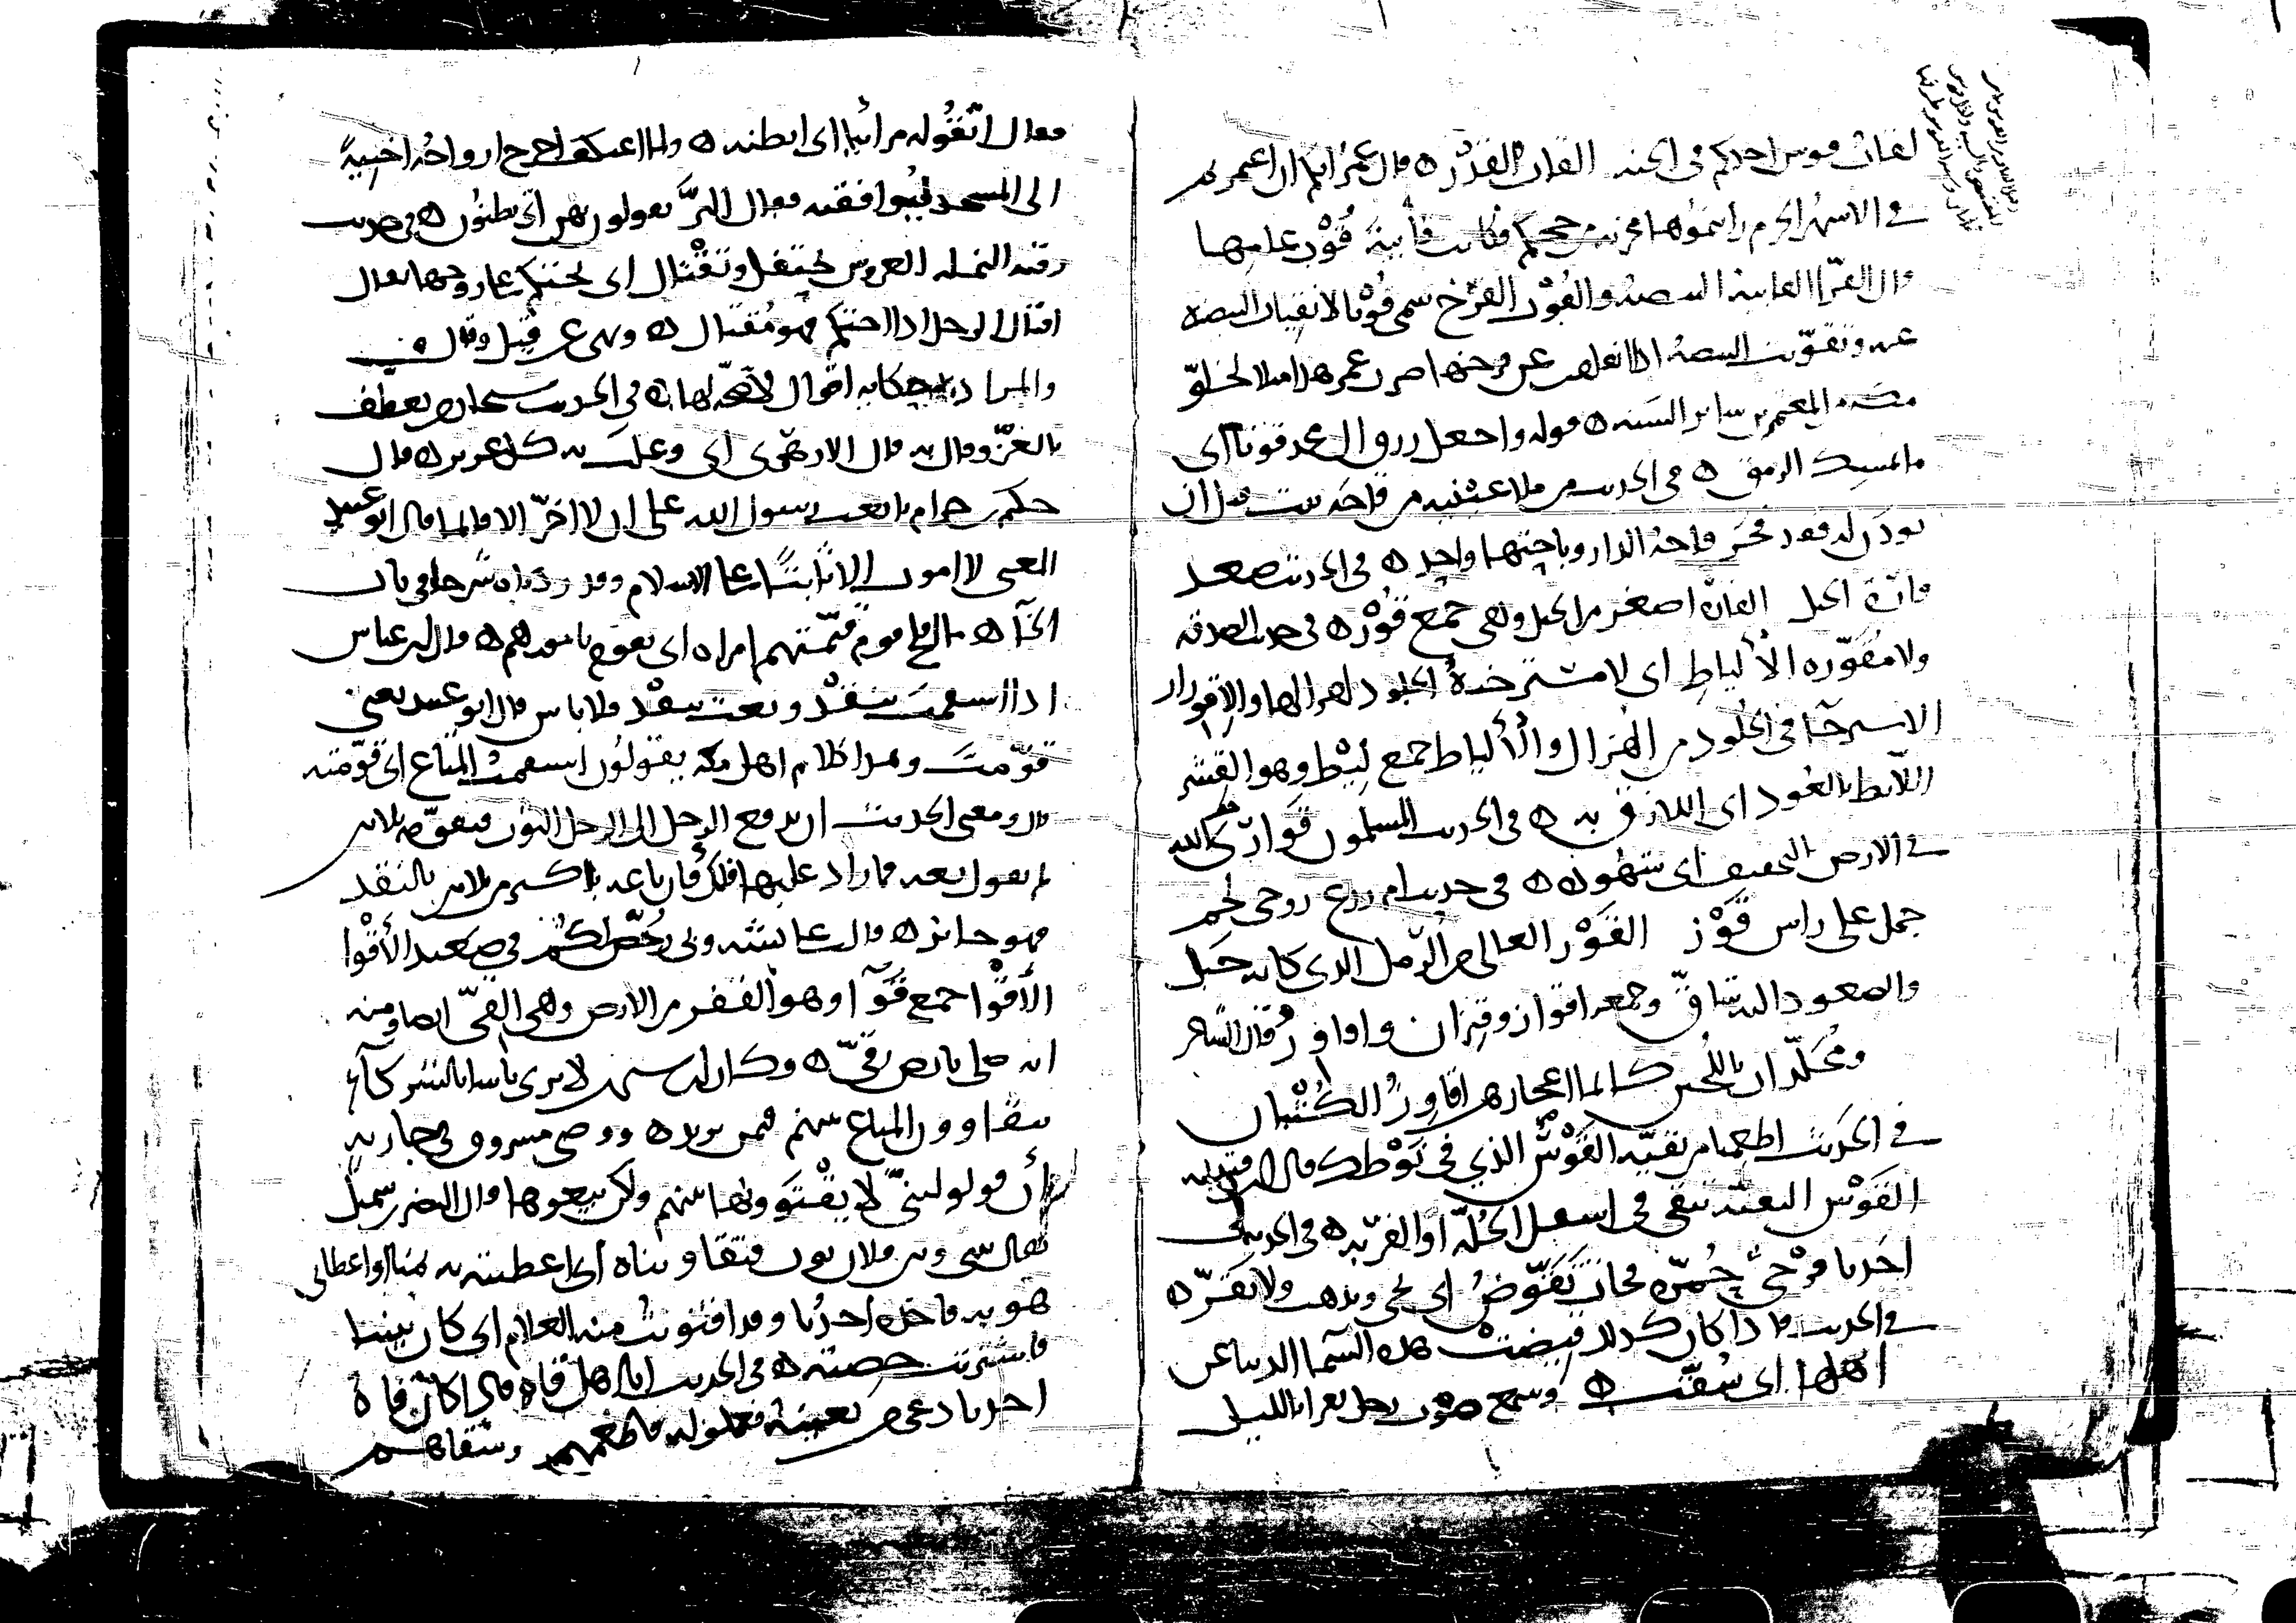 لقاب قوس احدكم في الجنة القاب القدر ه قال عمر انكم ان اعتمرتم
في الاشهر الحرم راىتموها مجزية من حجكم فكانت قايبة قوب عامها
قال الفرا القايبة البيضة والقوب الفرخ سمي قوبا لانقياب البيضة
عنه وتقوبت البيضة اذا انفلقت عن فرخها ضرب عمر هذا مثلا لخلو
مكة من المعتمرين ساير السنة ه قوله واجعل رزق ال محمد قوتا اي
ما يمسك الرمق ه في الحديث من ملا عينيه من قاحة بيت قبل ان
يوذن له فقد فجر قاحة الدار وباحتها واحد ه في الحديث صعد
قارة الجبل القارة اصغر من الجبل وهي جمع قور ه في حديث الصدقة
ولا مقورة الالياط اي لا مسترخية الجلود لهزالها والاقورار
الاسترخا في الجلود من الهزال والالياط جمع ليط وهو القشر
اللايط بالعود اي اللازق به ه في الحديث المسلمون قواري الله
في الارض اي شهوده ه في حديث ام زرع زوجي لحم
جمل على راس قوز القوز العالي من الرمل الذي كانه جبل
والصعود اليه شاق وجمعه اقواز وقيزان واقاوز قال الشاعر
ومخلدات باللجين كانما اعجازهن اقاوز الكثبان
في الحديث اطعمنا من بقية القوس الذي في نوطك قال ابن قتيبة
القوس البقية تبقى في اسفل الجلة او القربة ه في الحديث
اخذنا فرخي حمرة فجات تقوض اي تجي وتذهب ولا تقر ه
في الحديث فاذا كان كذلك قيضت هذه السما الدنيا عن
اهلها اي شقت ه وسمع صوت رجل يقرا بالليل
فقال اتقوله مرائيا اي اتظنه ه ولما اعتكف اخرج ازواجه اخبية
الى المسجد فقال البر تقولون بهن اي تظنون ه في حديث
رقية النملة العروس تحتفل وتقتال اي تحتكم على زوجها يقال
اقتال الرجل اذا احتكم فهو مقتال ه ونهى عن قيل وقال
والمراد به حكاية اقوال لا صحة لها ه في الحديث سبحان من تعطف
بالعز وقال به قال الازهري اي وغلب به كل عزيز ه قال
حكيم بن حزام بايعت رسول الله على ان لا اخر الا قايما قال ابو عبيد
المعنى لا اموت الا ثابتا على الاسلام وقد زدناه شرحا في باب
الخا ه ما افلح قوم قيمتهم امراة اي تقوم بامورهم ه قال ابن عباس
اذا استقمت بنقد وبعت بنقد فلا باس قال ابو عبيد يعني
قومت وهذا كلام اهل مكة يقولون استقمت المتاع اي قومته
قال ومعنى الحديث ان يدفع الرجل الى الرجل الثوب فيقومه بثلاثين
ثم يقول بعه فما زاد عليها فلك فان باعه باكثر من ثلاثين بالنقد
فهو جايز ه قالت عايشة وبي رخص لكم في صعيد الاقوا
الاقوا جمع قوا وهو القفر من الارض وهي القي ايضا ومنه
انه صلى بارض قي ه وكان ابن سيرين لا يرى باسا بالشركا
يتقاوون المتاع بينهم فيمن يزيد ه ووصى مسروق في جارية
ان قولوا لبني لا يقتووها بينهم ولكن بيعوها قال النضر بن شميل
يقال بيني وبين فلان ثوب فتقاويناه اي اعطيته به ثمنا او اعطاني
هو به فاخذه احدنا وقد اقتويت منه الغلام اي كان بيننا
فاشتريت حصته ه في الحديث انا اهل قاه فاذا كان قاه
احدنا دعى من يعينه فعملوا له فاطعمهم وسقاهم